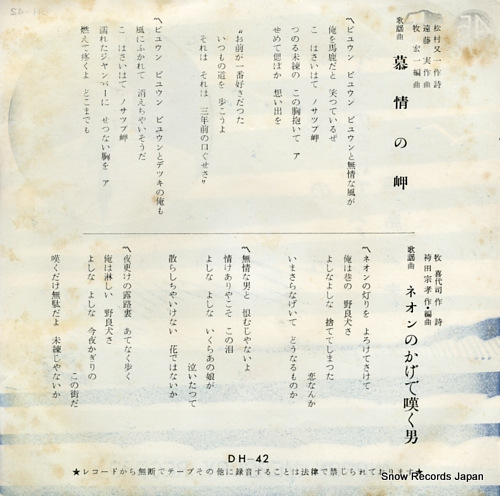 歌謡曲
慕情の岬
松村又一 作詩
遠藤実 作曲
牧宏一 編曲
ビュウン ビュウン ビュウンと無情な風が
俺を馬鹿だと 笑つているぜ
こゝはさいはて ノサツプ岬
つのる未練の この胸抱いて ア
せめて偲ばか 想い出を
“お前が一番好きだつた
いつもの道を 歩こうよ
それは それは 三年前の口ぐせさ”
ビュウン ビュウン ビュウンとデツキの俺も
風にふかれて 消えちゃいそうだ
こゝはさいはて ノサツプ岬
濡れたジャンバーに せつない胸を ア
燃えて疼くよ どこまでも
歌謡曲
ネオンのかげで嘆く男
牧喜代司 作詩
袴田宗孝 作・編曲
ネオンの灯りを よろけてさけて
俺は巷の 野良犬さ
よしなよしな 捨ててしまつた
恋なんか
いまさらなげいて どうなるものか
無情な男と 恨むじゃないよ
情けありやこそ この泪
よしな よしな いくらあの娘が
泣いたつて
散らしちゃいけない 花ではないか
夜更けの露路裏 あてなく歩く
俺は淋しい 野良犬さ
よしな よしな 今夜かぎりの
この街だ
嘆くだけ無駄だよ 未練じゃないか
DH-42
★レコードから無断でテープその他に録音することは法律で禁じられております★
Snow Records Japan